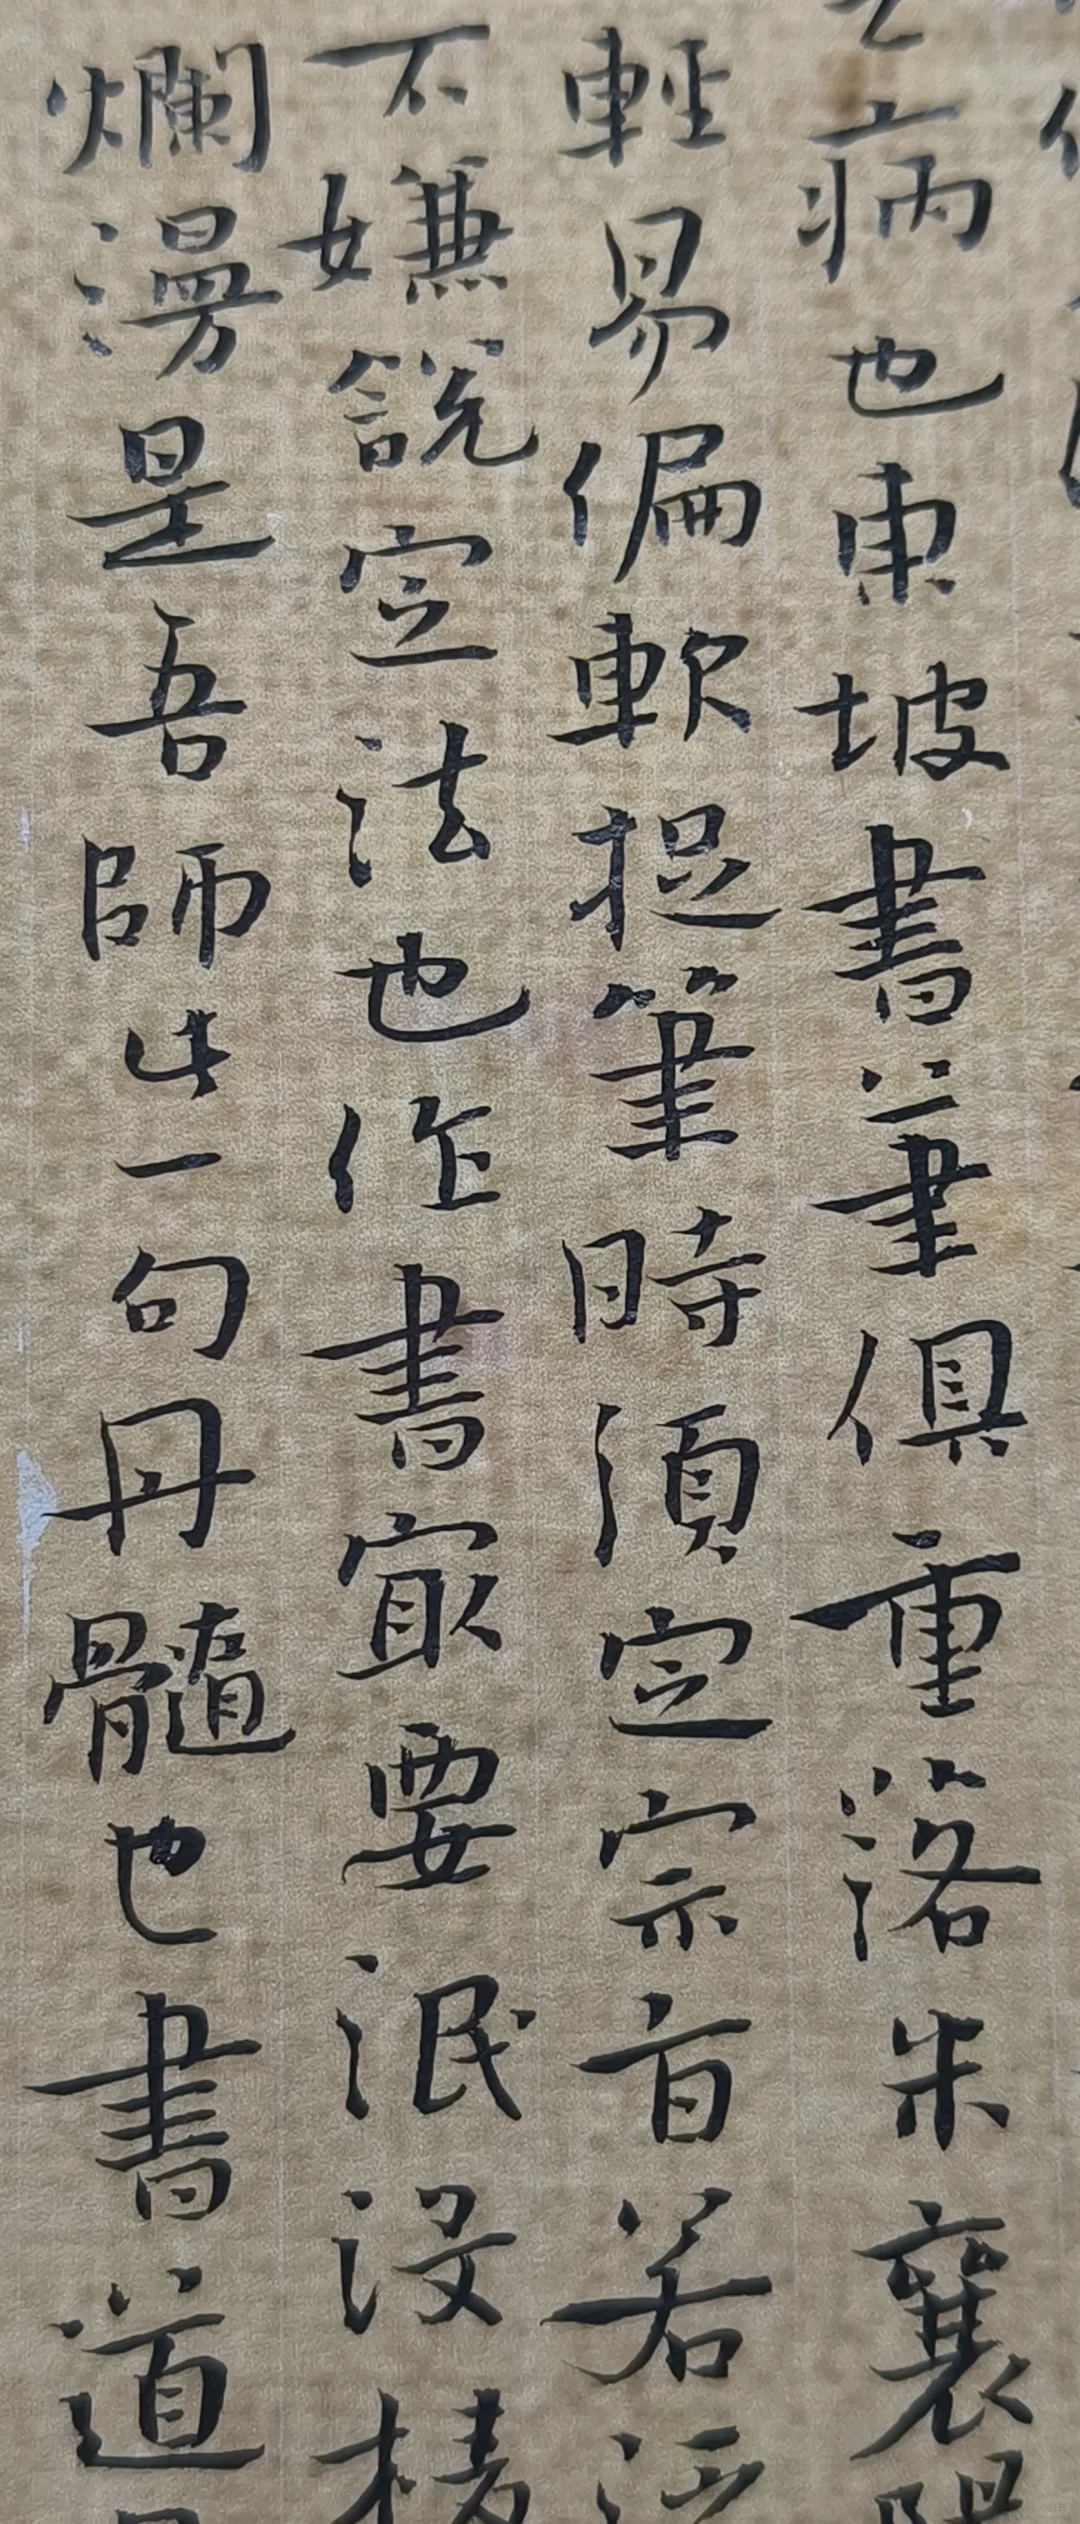 病也東坡書筆俱重落米襄陽
輕易偏軟捉筆時須定宗旨若
不嫌說定法也作書最要泯沒棱
爛漫是吾師此一句丹髓也書道